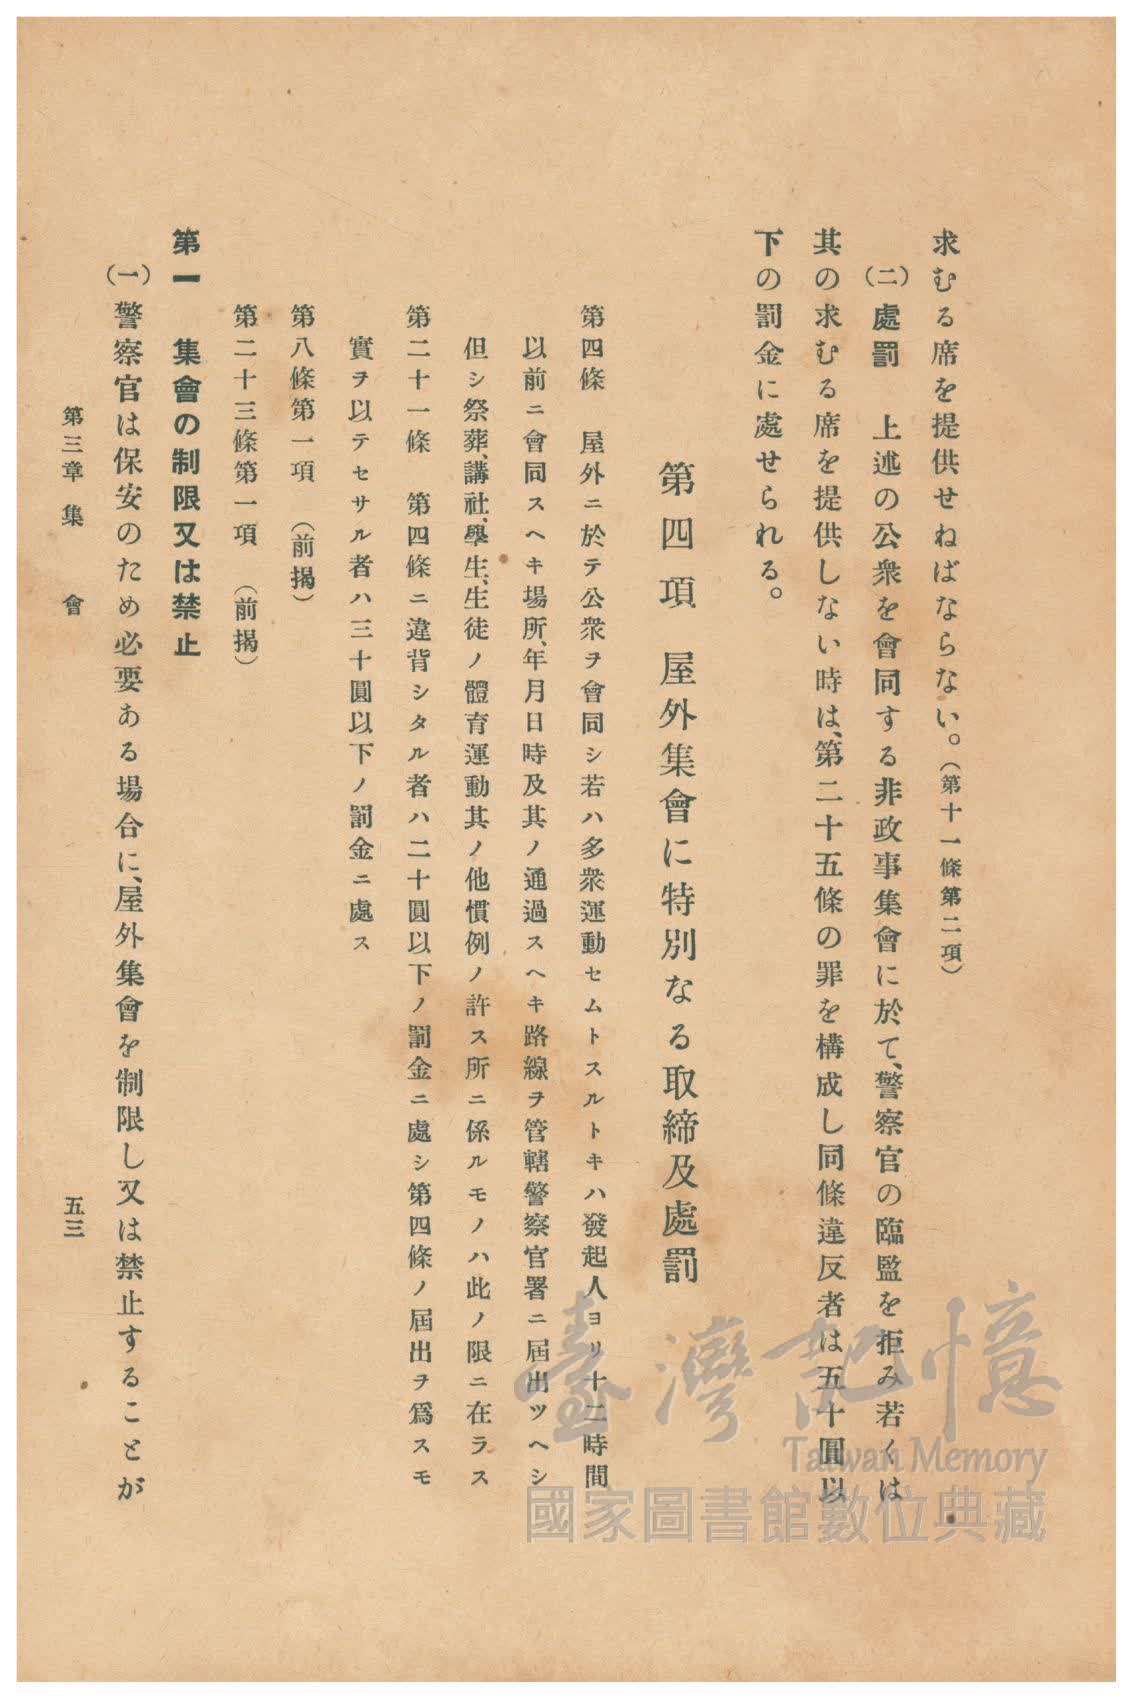 求むる席を提供せねばならない。（第十一條第二項）
（二）處罰　上述の公衆を會同する非政事集會に於て、警察官の臨監を拒み若くは
其の求むる席を提供しない時は、第二十五條の罪を構成し同條違反者は五十圓以
下の罰金に處せられる。
第四項　屋外集會に特別なる取締及處罰
第四條　屋外ニ於テ公衆ヲ會同シ若ハ多衆運動セムトスルトキハ發起人ヨリ十二時間
以前ニ會同スヘキ場所、年月日時及其ノ通過スヘキ路線ヲ管轄警察官署ニ屆出ツヘシ
但シ祭葬、講社、學生、生徒ノ體育運動其ノ他慣例ノ許ス所ニ係ルモノハ此ノ限ニ在ラス
第二十一條　第四條ニ違背シタル者ハ二十圓以下ノ罰金ニ處シ第四條ノ屆出ヲ爲スモ
實ヲ以テセサル者ハ三十圓以下ノ罰金ニ處ス
第八條第一項　（前揭）
第二十三條第一項　（前揭）
第一　集會の制限又は禁止
（一）警察官は保安のため必要ある場合に、屋外集會を制限し又は禁止することが
第三章　集　會
五三
臺灣記憶
Taiwan Memory
國家圖書館數位典藏